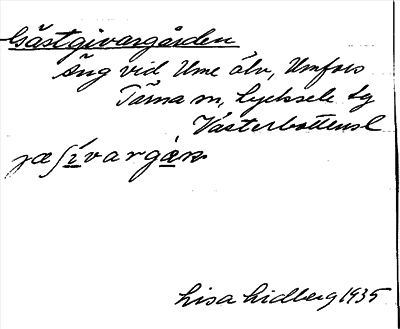 Gästgivargården
Äng vid Ume älv, Umfors
Tärna sn, Lycksele lg
Västerbottensl
Lisa Lidberg 1935